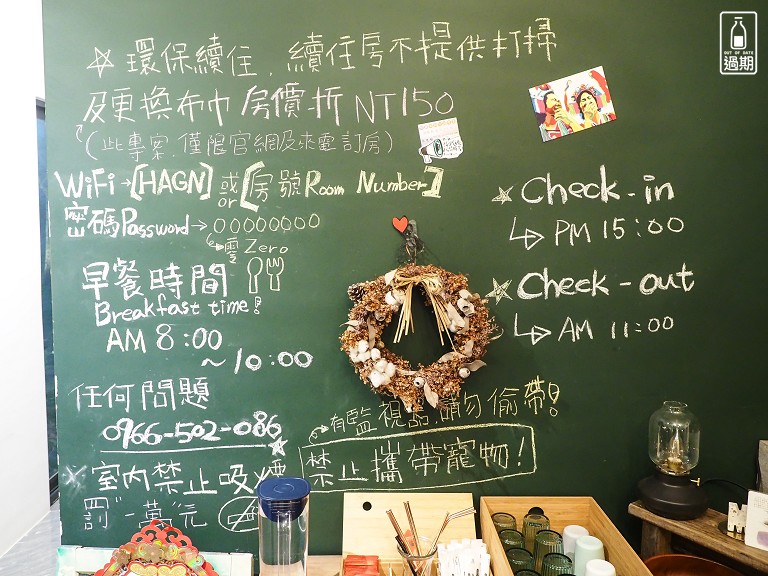 ☆環保續住,續住房不提供打掃
及更換布巾 房價折NT150
(此專案,僅限官網及來電訂房)
WiFi→[HAGN]或or[房號Room Number]
密碼Password→00000000
零Zero
早餐時間
Breakfast time!
AM 8:00
~10:00
任何問題
0966-502-086
※室內禁止吸煙
罰"一萬"元
有監視器,請勿偷帶!
禁止攜帶寵物!
☆Check-in
PM 15:00
☆Check-out
AM 11:00
OUT OF DATE
過期